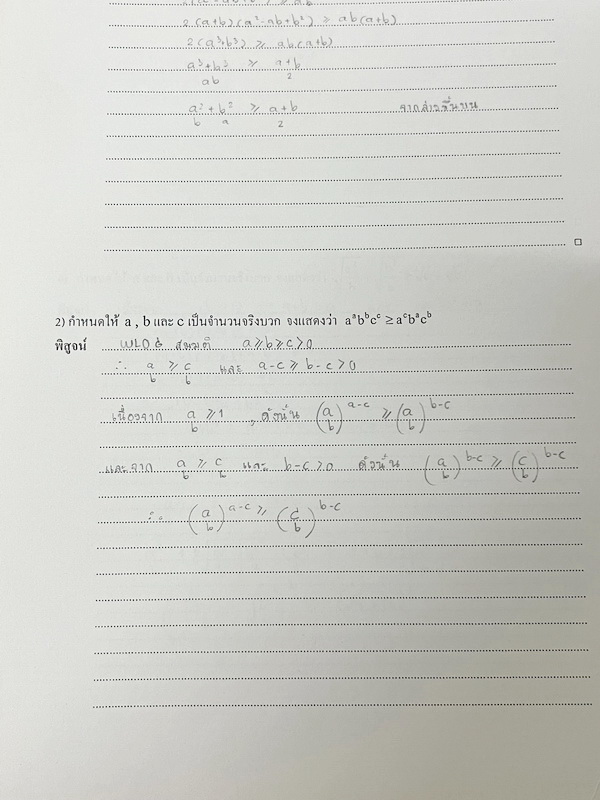 2(a+b)(a²-ab+b²) ≥ ab(a+b)
2(a³+b³) ≥ ab(a+b)
a³+b³/ab ≥ a+b/2
a²/b + b²/a ≥ a+b/2 จากส่วนขึ้นบน
2) กำหนดให้ a , b และ c เป็นจำนวนจริงบวก จงแสดงว่า aᵃbᵇcᶜ ≥ aᶜbᵃcᵇ
พิสูจน์ WLOG สมมติ a ≥ b ≥ c > 0
∴ a/b ≥ c/b และ a-c ≥ b-c > 0
เนื่องจาก a/b ≥ 1 , ดังนั้น (a/b)^(a-c) ≥ (a/b)^(b-c)
และจาก a/b ≥ c/b และ b-c > 0 ดังนั้น (a/b)^(b-c) ≥ (c/b)^(b-c)
∴ (a/b)^(a-c) ≥ (c/b)^(b-c)